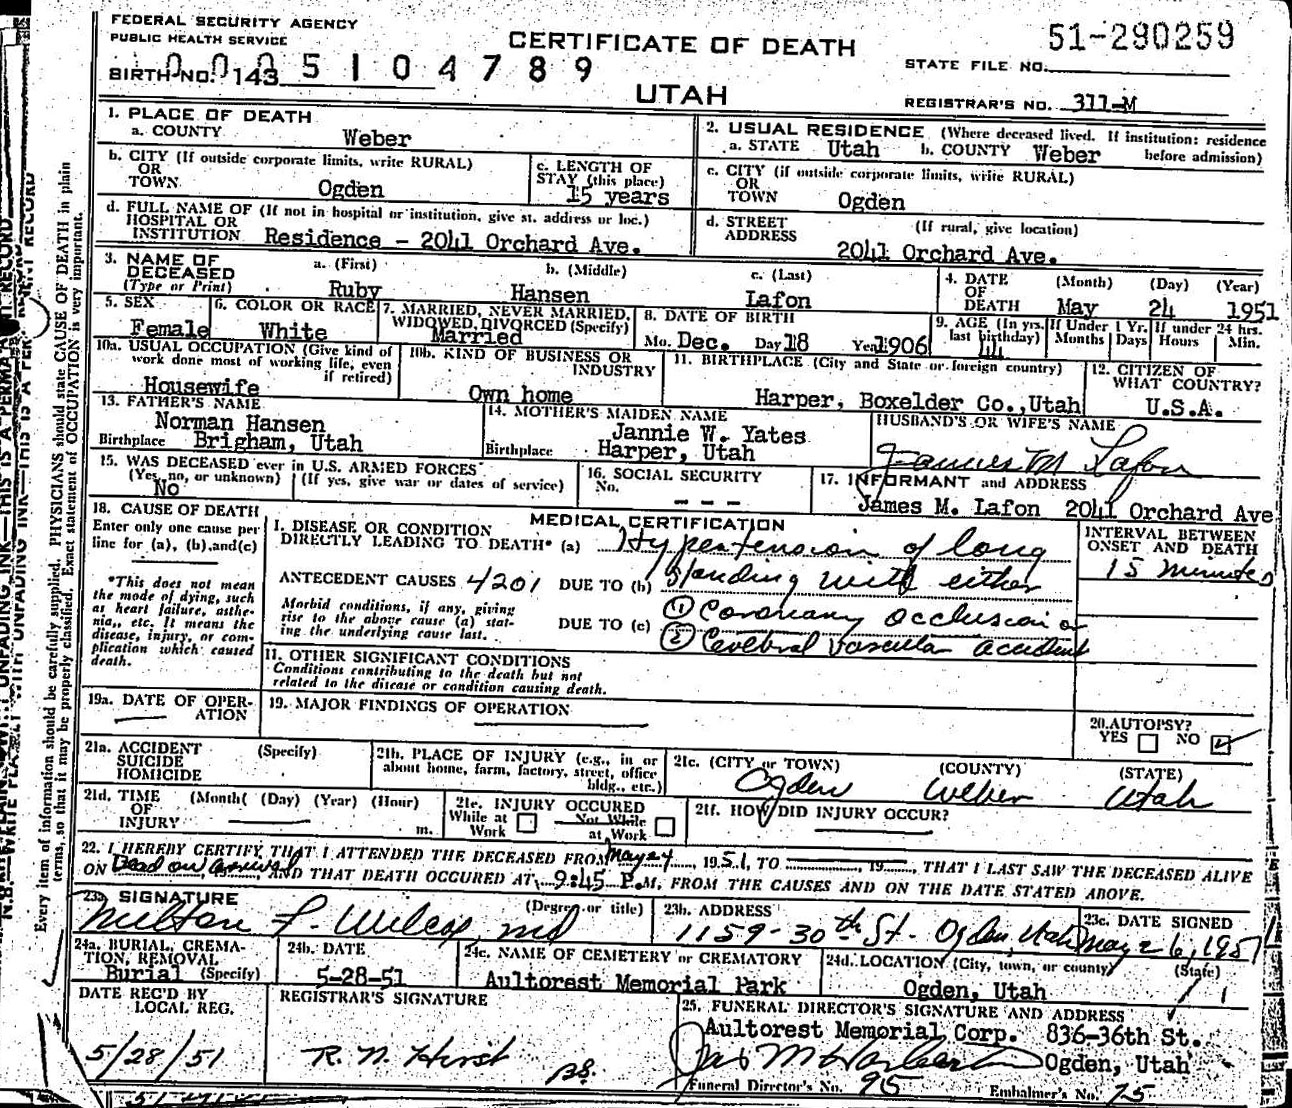 FEDERAL SECURITY AGENCY
PUBLIC HEALTH SERVICE
CERTIFICATE OF DEATH
51-290259
STATE FILE NO.
BIRTH NO. 143
0005104789
UTAH
REGISTRAR'S NO. 311-M
1. PLACE OF DEATH
a. COUNTY Weber
2. USUAL RESIDENCE (Where deceased lived. If institution: residence before admission)
a. STATE Utah b. COUNTY Weber
b. CITY (If outside corporate limits, write RURAL)
OR
TOWN Ogden
c. LENGTH OF
STAY (this place)
15 years
c. CITY (if outside corporate limits, write RURAL)
OR
TOWN Ogden
d. FULL NAME OF (If not in hospital or institution, give st. address or loc.)
HOSPITAL OR
INSTITUTION Residence - 2041 Orchard Ave.
d. STREET (If rural, give location)
ADDRESS 2041 Orchard Ave.
3. NAME OF a. (First) b. (Middle) c. (Last)
DECEASED
(Type or Print) Ruby Hansen Lafon
4. DATE (Month) (Day) (Year)
OF
DEATH May 24 1951
5. SEX
Female
6. COLOR OR RACE
White
7. MARRIED, NEVER MARRIED,
WIDOWED, DIVORCED (Specify)
Married
8. DATE OF BIRTH
Mo. Dec. Day 18 Year 1906
9. AGE (In yrs. last birthday)
44
If Under 1 Yr.
Months Days
If under 24 hrs.
Hours Min.
10a. USUAL OCCUPATION (Give kind of
work done most of working life, even
if retired)
Housewife
10b. KIND OF BUSINESS OR
INDUSTRY
Own home
11. BIRTHPLACE (City and State or foreign country)
Harper, Boxelder Co., Utah
12. CITIZEN OF
WHAT COUNTRY?
U.S.A.
13. FATHER'S NAME
Norman Hansen
Birthplace Brigham, Utah
14. MOTHER'S MAIDEN NAME
Jannie W. Yates
Birthplace Harper, Utah
HUSBAND'S OR WIFE'S NAME
James M Lafon
15. WAS DECEASED ever in U.S. ARMED FORCES
(Yes, no, or unknown) (If yes, give war or dates of service)
No
16. SOCIAL SECURITY
No. - - -
17. INFORMANT and ADDRESS
James M. Lafon 2041 Orchard Ave
18. CAUSE OF DEATH
Enter only one cause per
line for (a), (b), and (c)
*This does not mean
the mode of dying, such
as heart failure, asthe-
nia, etc. It means the
disease, injury, or com-
plication which caused
death.
MEDICAL CERTIFICATION
I. DISEASE OR CONDITION
DIRECTLY LEADING TO DEATH* (a) Hypertension of long
ANTECEDENT CAUSES 4201 DUE TO (b) standing with either
Morbid conditions, if any, giving
rise to the above cause (a) stat-
ing the underlying cause last.
DUE TO (c) (1) Coronary occlusion or
(2) Cerebral Vascular accident
INTERVAL BETWEEN
ONSET AND DEATH
15 minutes
11. OTHER SIGNIFICANT CONDITIONS
Conditions contributing to the death but not
related to the disease or condition causing death.
19a. DATE OF OPER-
ATION
19. MAJOR FINDINGS OF OPERATION
20. AUTOPSY?
YES NO
21a. ACCIDENT (Specify)
SUICIDE
HOMICIDE
21b. PLACE OF INJURY (e.g., in or
about home, farm, factory, street, office
bldg., etc.)
21c. (CITY or TOWN) (COUNTY) (STATE)
Ogden Weber Utah
21d. TIME (Month) (Day) (Year) (Hour)
OF
INJURY m.
21e. INJURY OCCURED
While at Work Not While at Work
21f. HOW DID INJURY OCCUR?
22. I HEREBY CERTIFY THAT I ATTENDED THE DECEASED FROM May 24, 1951, TO 19, THAT I LAST SAW THE DECEASED ALIVE
ON Dead on arrival, AND THAT DEATH OCCURED AT 9:45 P.M., FROM THE CAUSES AND ON THE DATE STATED ABOVE.
23a. SIGNATURE (Degree or title)
Milton F. Wilcox, md
23b. ADDRESS
1159-30th St. Ogden, Utah
23c. DATE SIGNED
May 26, 1951
24a. BURIAL, CREMA-
TION, REMOVAL
Burial (Specify)
24b. DATE
5-28-51
24c. NAME OF CEMETERY or CREMATORY
Aultorest Memorial Park
24d. LOCATION (City, town, or county) (State)
Ogden, Utah
DATE REC'D BY
LOCAL REG.
5/28/51
REGISTRAR'S SIGNATURE
R. N. Hirst
25. FUNERAL DIRECTOR'S SIGNATURE AND ADDRESS
Aultorest Memorial Corp. 836-36th St.
Ogden, Utah
Funeral Director's No. 95
Embalmer's No. 75
Every item of information should be carefully supplied. PHYSICIANS should state CAUSE OF DEATH in plain
terms, so that it may be properly classified. Exact statement of OCCUPATION is very important.